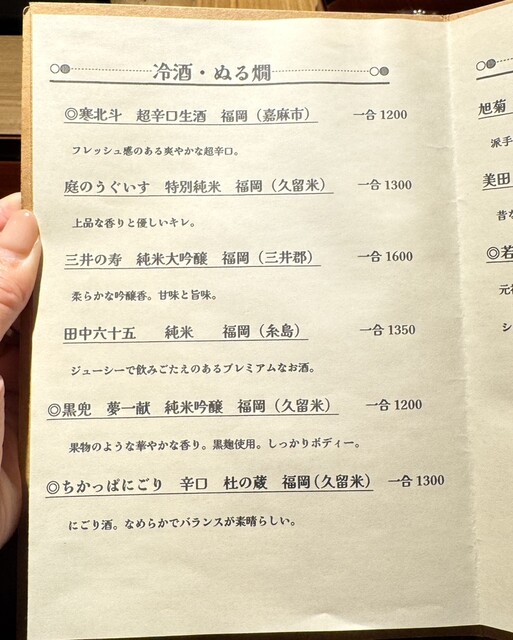 冷酒・ぬる燗
◎寒北斗 超辛口生酒 福岡（嘉麻市） 一合1200
フレッシュ感のある爽やかな超辛口。
庭のうぐいす 特別純米 福岡（久留米） 一合1300
上品な香りと優しいキレ。
三井の寿 純米大吟醸 福岡（三井郡） 一合1600
柔らかな吟醸香。甘味と旨味。
田中六十五 純米 福岡（糸島） 一合1350
ジューシーで飲みごたえのあるプレミアムなお酒。
◎黒兜 夢一献 純米吟醸 福岡（久留米） 一合1200
果物のような華やかな香り。黒麹使用。しっかりボディー。
◎ちかっぱにごり 辛口 杜の蔵 福岡（久留米） 一合1300
にごり酒。なめらかでバランスが素晴らしい。
旭菊
派手
美田
昔な
◎若
元
シ